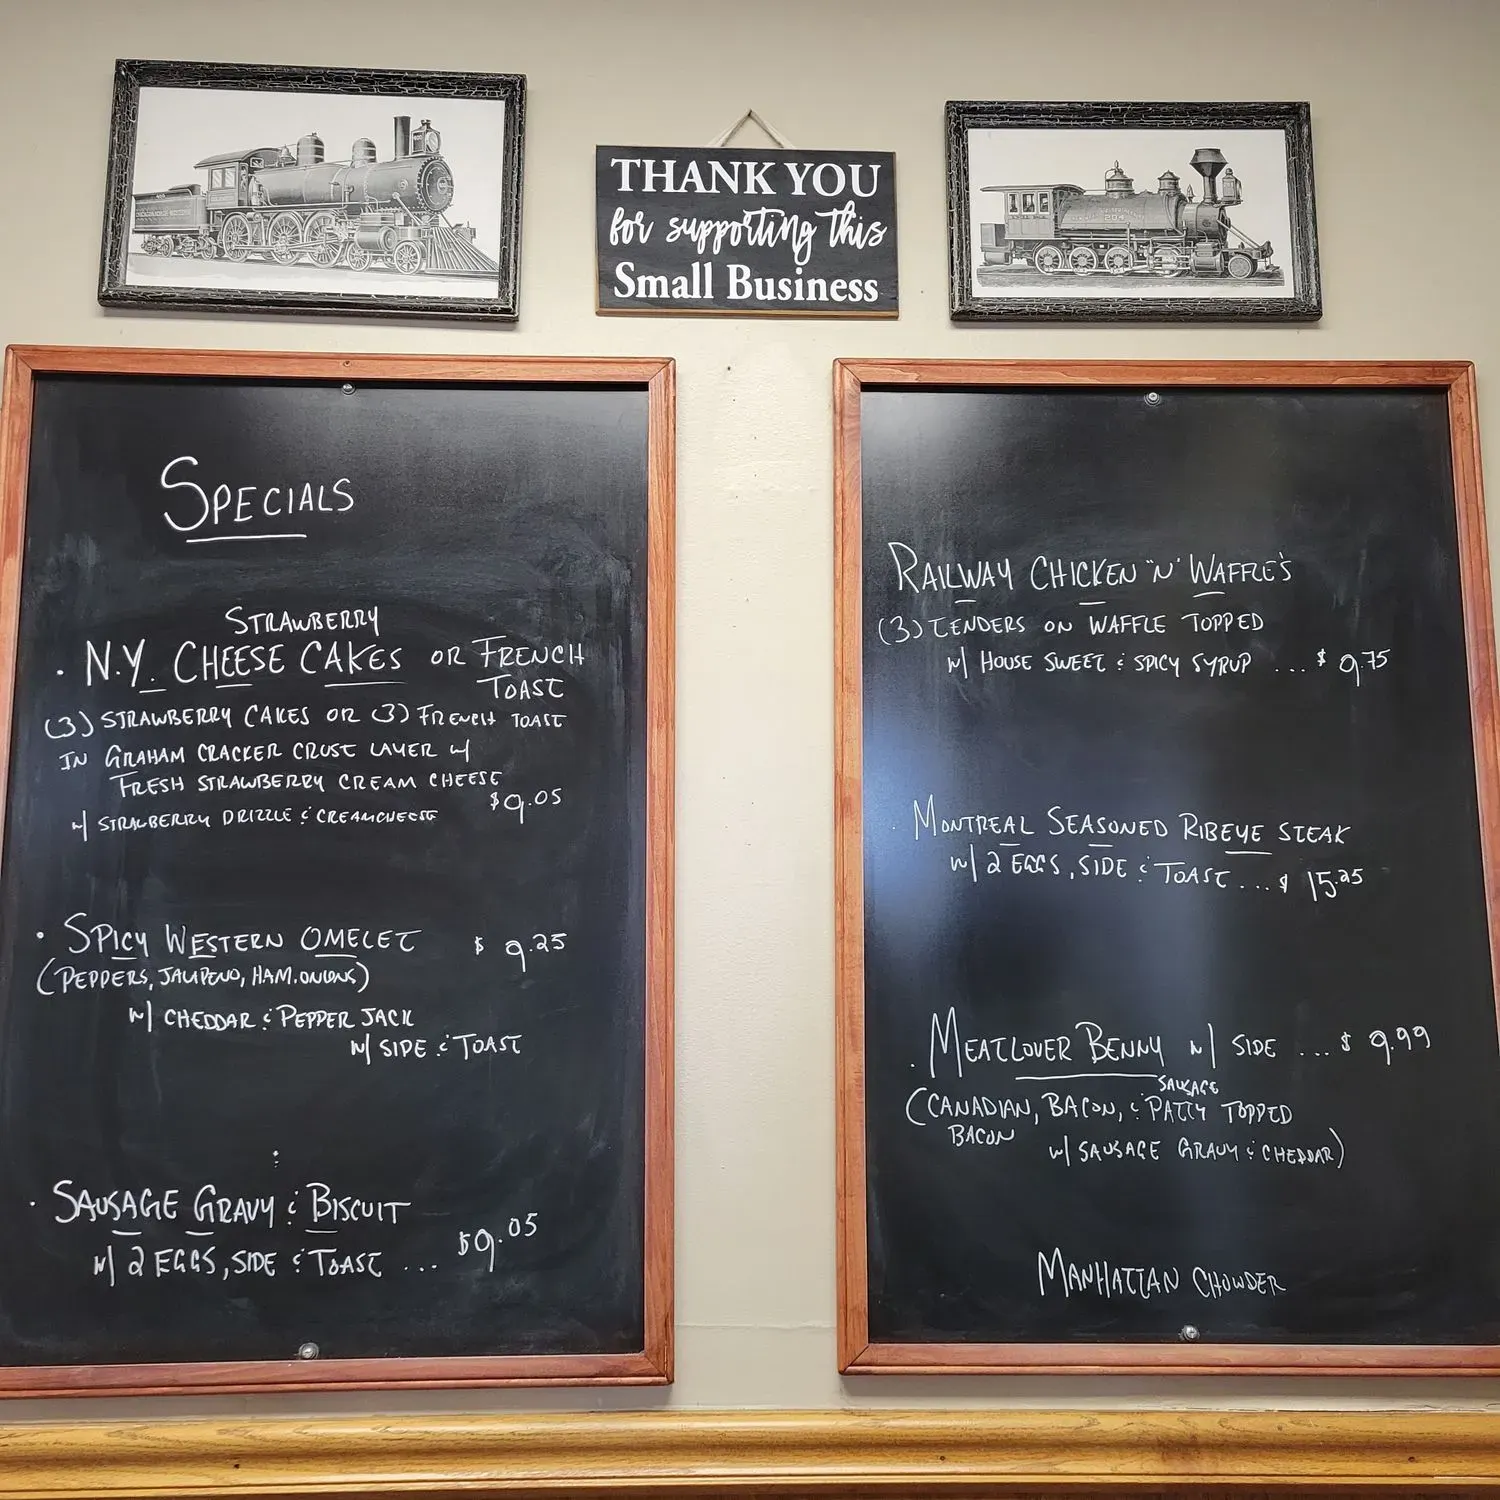 THANK YOU
for supporting this
Small Business
SPECIALS
STRAWBERRY
· N.Y. CHEESE CAKES OR FRENCH
TOAST
(3) STRAWBERRY CAKES OR (3) FRENCH TOAST
IN GRAHAM CRACKER CRUST LAYER W/
FRESH STRAWBERRY CREAM CHEESE
$9.05
W/ STRAWBERRY DRIZZLE & CREAMCHEESE
· SPICY WESTERN OMELET $ 9.25
(PEPPERS, JALAPENO, HAM, ONIONS)
W/ CHEDDAR & PEPPER JACK
W/ SIDE & TOAST
· SAUSAGE GRAVY & BISCUIT
W/ 2 EGGS, SIDE & TOAST ... $9.05
RAILWAY CHICKEN "N" WAFFLE'S
(3) TENDERS ON WAFFLE TOPPED
W/ HOUSE SWEET & SPICY SYRUP ... $ 9.75
· MONTREAL SEASONED RIBEYE STEAK
W/ 2 EGGS, SIDE & TOAST ... $ 15.25
· MEATLOVER BENNY W/ SIDE ... $ 9.99
SAUSAGE
(CANADIAN, BACON, & PATTY TOPPED
BACON
W/ SAUSAGE GRAVY & CHEDDAR)
MANHATTAN CHOWDER